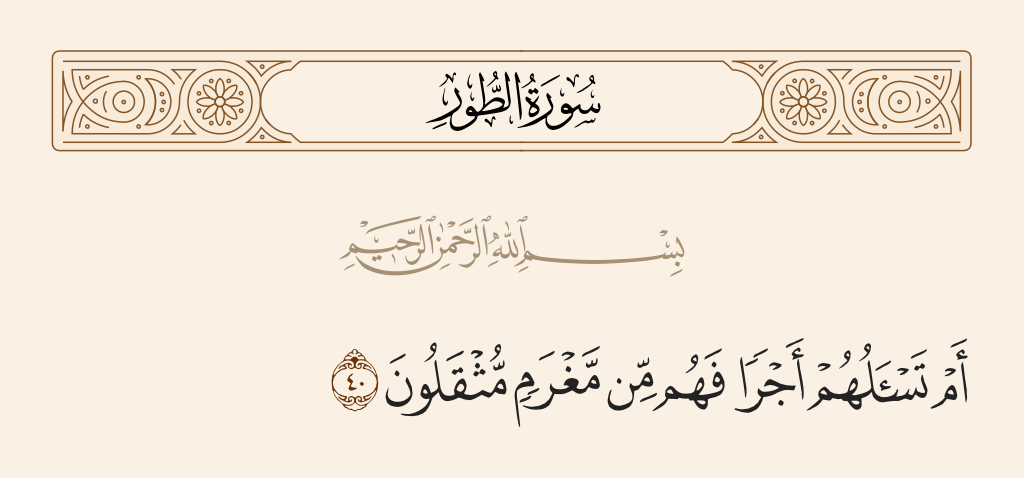 سُورَةُ الطُّورِ
بِسْمِ ٱللَّهِ ٱلرَّحْمَٰنِ ٱلرَّحِيمِ
أَمْ تَسْـَٔلُهُمْ أَجْرًا فَهُم مِّن مَّغْرَمٍ مُّثْقَلُونَ ٤٠